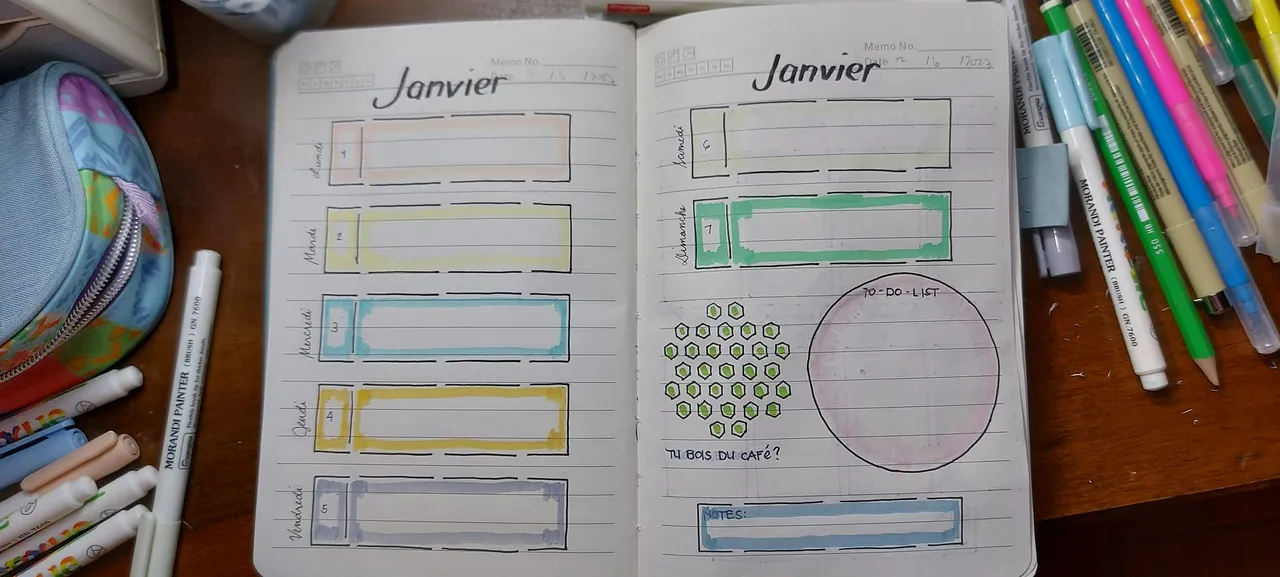 Memo No.
Janvier
Lundi
1
Mardi
2
Mercredi
3
Jeudi
4
Vendredi
5
Memo No.
Date
Janvier
Samedi
6
Dimanche
7
TO-DO-LIST
TU BOIS DU CAFé?
NOTES:
MORANDI PAINTER (BRUSH) GN.7600
MORANDI PAINTER (BRUSH) GN.7600
MORANDI PAINTER
550 HB